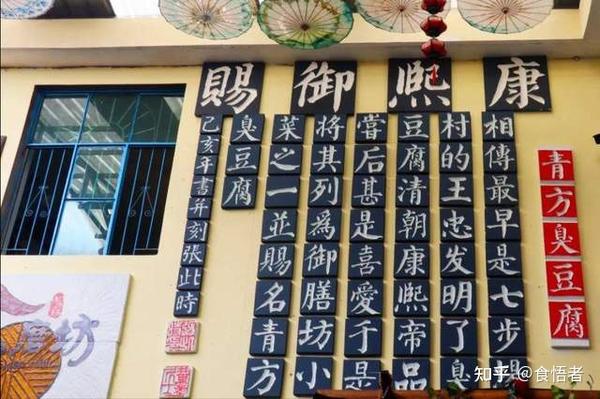 康熙御賜
青方臭豆腐
相傳最早是七步
村的王忠发明了臭
豆腐清朝康熙帝品
嘗后甚是喜愛于是
將其列爲御膳坊小
菜之一並賜名青方
臭豆腐
己亥年書并刻张此時
坊
知乎 @食悟者